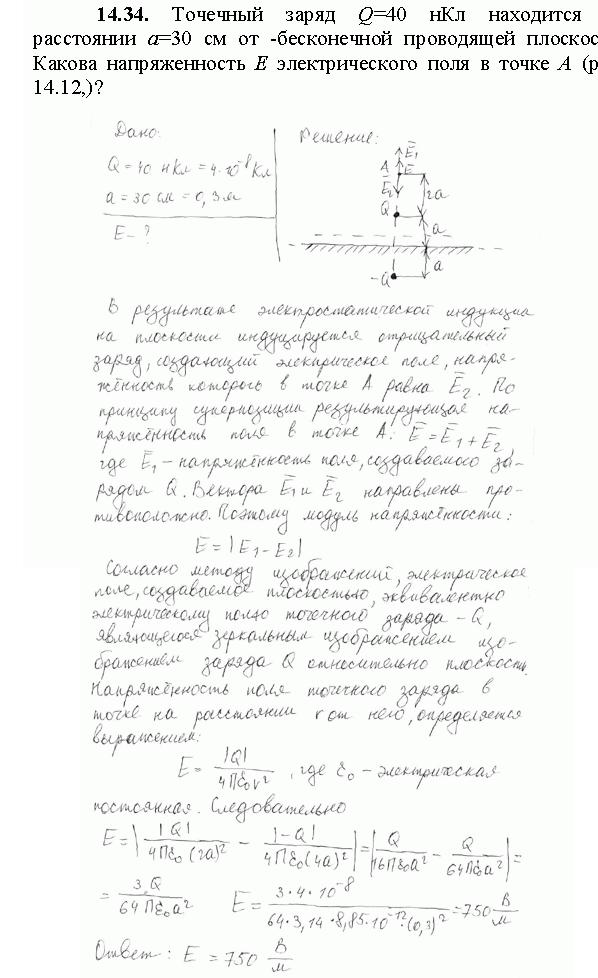 14.34. Точечный заряд Q=40 нКл находится
расстоянии a=30 см от -бесконечной проводящей плоскос
Какова напряженность E электрического поля в точке A (р
14.12,)?
Дано:
Решение:
Q = 40 нКл = 4·10⁻⁸ Кл
a = 30 см = 0,3 м
E - ?
E̅₁
A
E̅
E̅₂
2a
Q
a
a
-Q
В результате электростатической индукции
на плоскости индуцируется отрицательный
заряд, создающий электрическое поле, напря-
жённость которого в точке А равна E̅₂. По
принципу суперпозиции результирующая на-
пряжённость поля в точке А: E̅ = E̅₁ + E̅₂,
где E̅₁ – напряжённость поля, создаваемого за-
рядом Q. Вектора E̅₁ и E̅₂ направлены про-
тивоположно. Поэтому модуль напряжённости:
E = |E₁ - E₂|
Согласно методу изображений, электрическое
поле, создаваемое плоскостью, эквивалентно
электрическому полю точечного заряда -Q,
являющегося зеркальным изображением изо-
бражением заряда Q относительно плоскости.
Напряжённость поля точечного заряда в
точке на расстоянии r от него, определяется
выражением:
E = |Q| / 4πε₀r², где ε₀ – электрическая
постоянная. Следовательно
E = | |Q| / 4πε₀(2a)² - |-Q| / 4πε₀(4a)² | = | Q / 16πε₀a² - Q / 64πε₀a² | =
= 3Q / 64πε₀a² E = 3·4·10⁻⁸ / 64·3,14·8,85·10⁻¹²·(0,3)² = 750 В/м
Ответ: E = 750 В/м